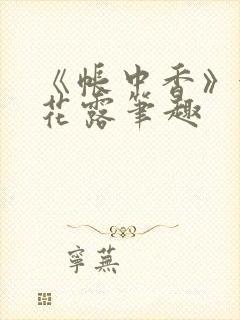 《帐中香》
花露笔趣
寧蕪